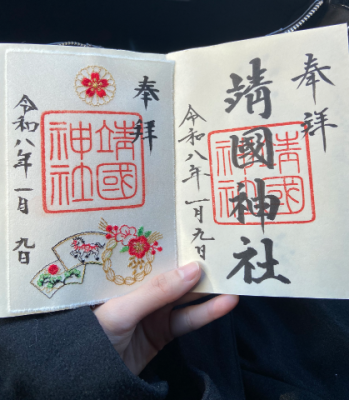 奉拝
靖國神社
令和八年一月九日
奉拝
靖國神社
靖國神社
令和八年一月九日